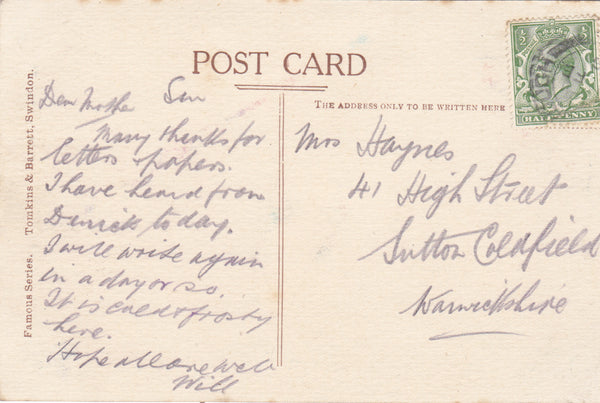 POST CARD
THE ADDRESS ONLY TO BE WRITTEN HERE
Famous Series. Tomkins & Barrett, Swindon.
Dear Mother Sun
Many thanks for
letters & papers.
I have heard from
today.
I will write again
in a day or so.
It is cold & frosty
here.
Hope all are well
Will
Mrs Haynes
41 High Street
Sutton Coldfield
Warwickshire
HALFPENNY